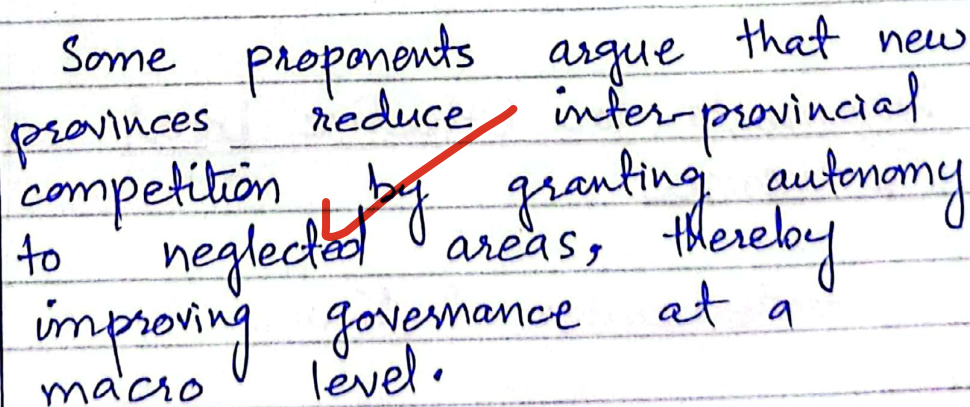 Some proponents argue that new
provinces reduce inter-provincial
competition by granting autonomy
to neglected areas, thereby
improving governance at a
macro level.